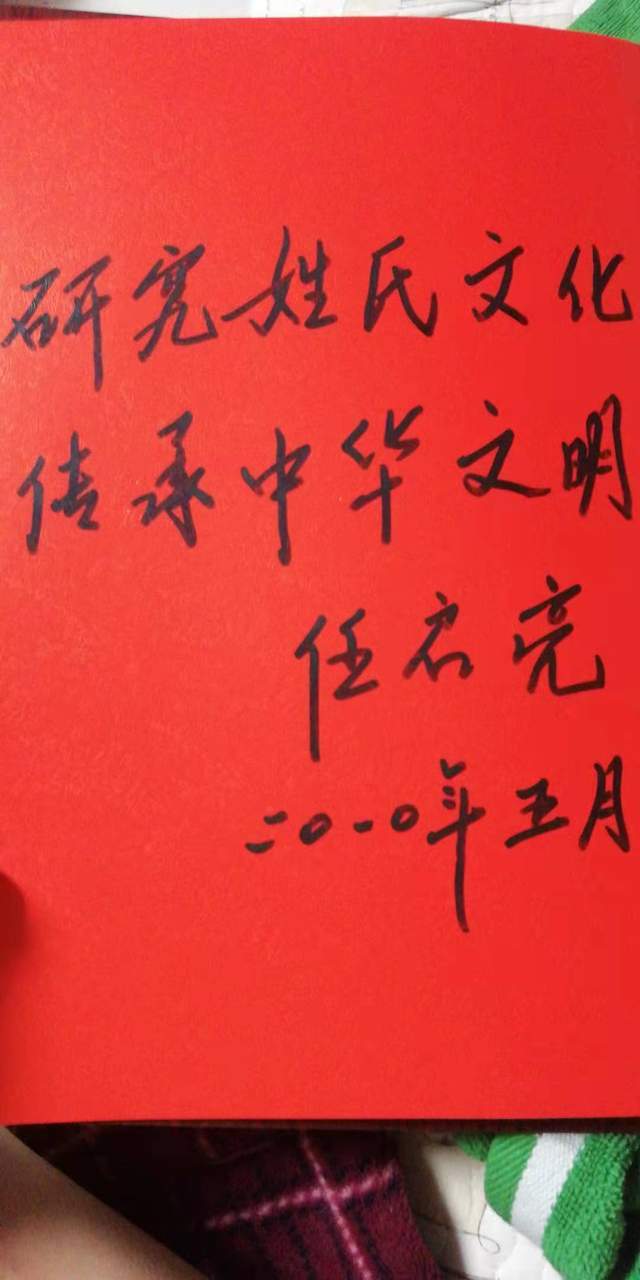 研究姓氏文化
传承中华文明
任启亮
二〇一〇年五月